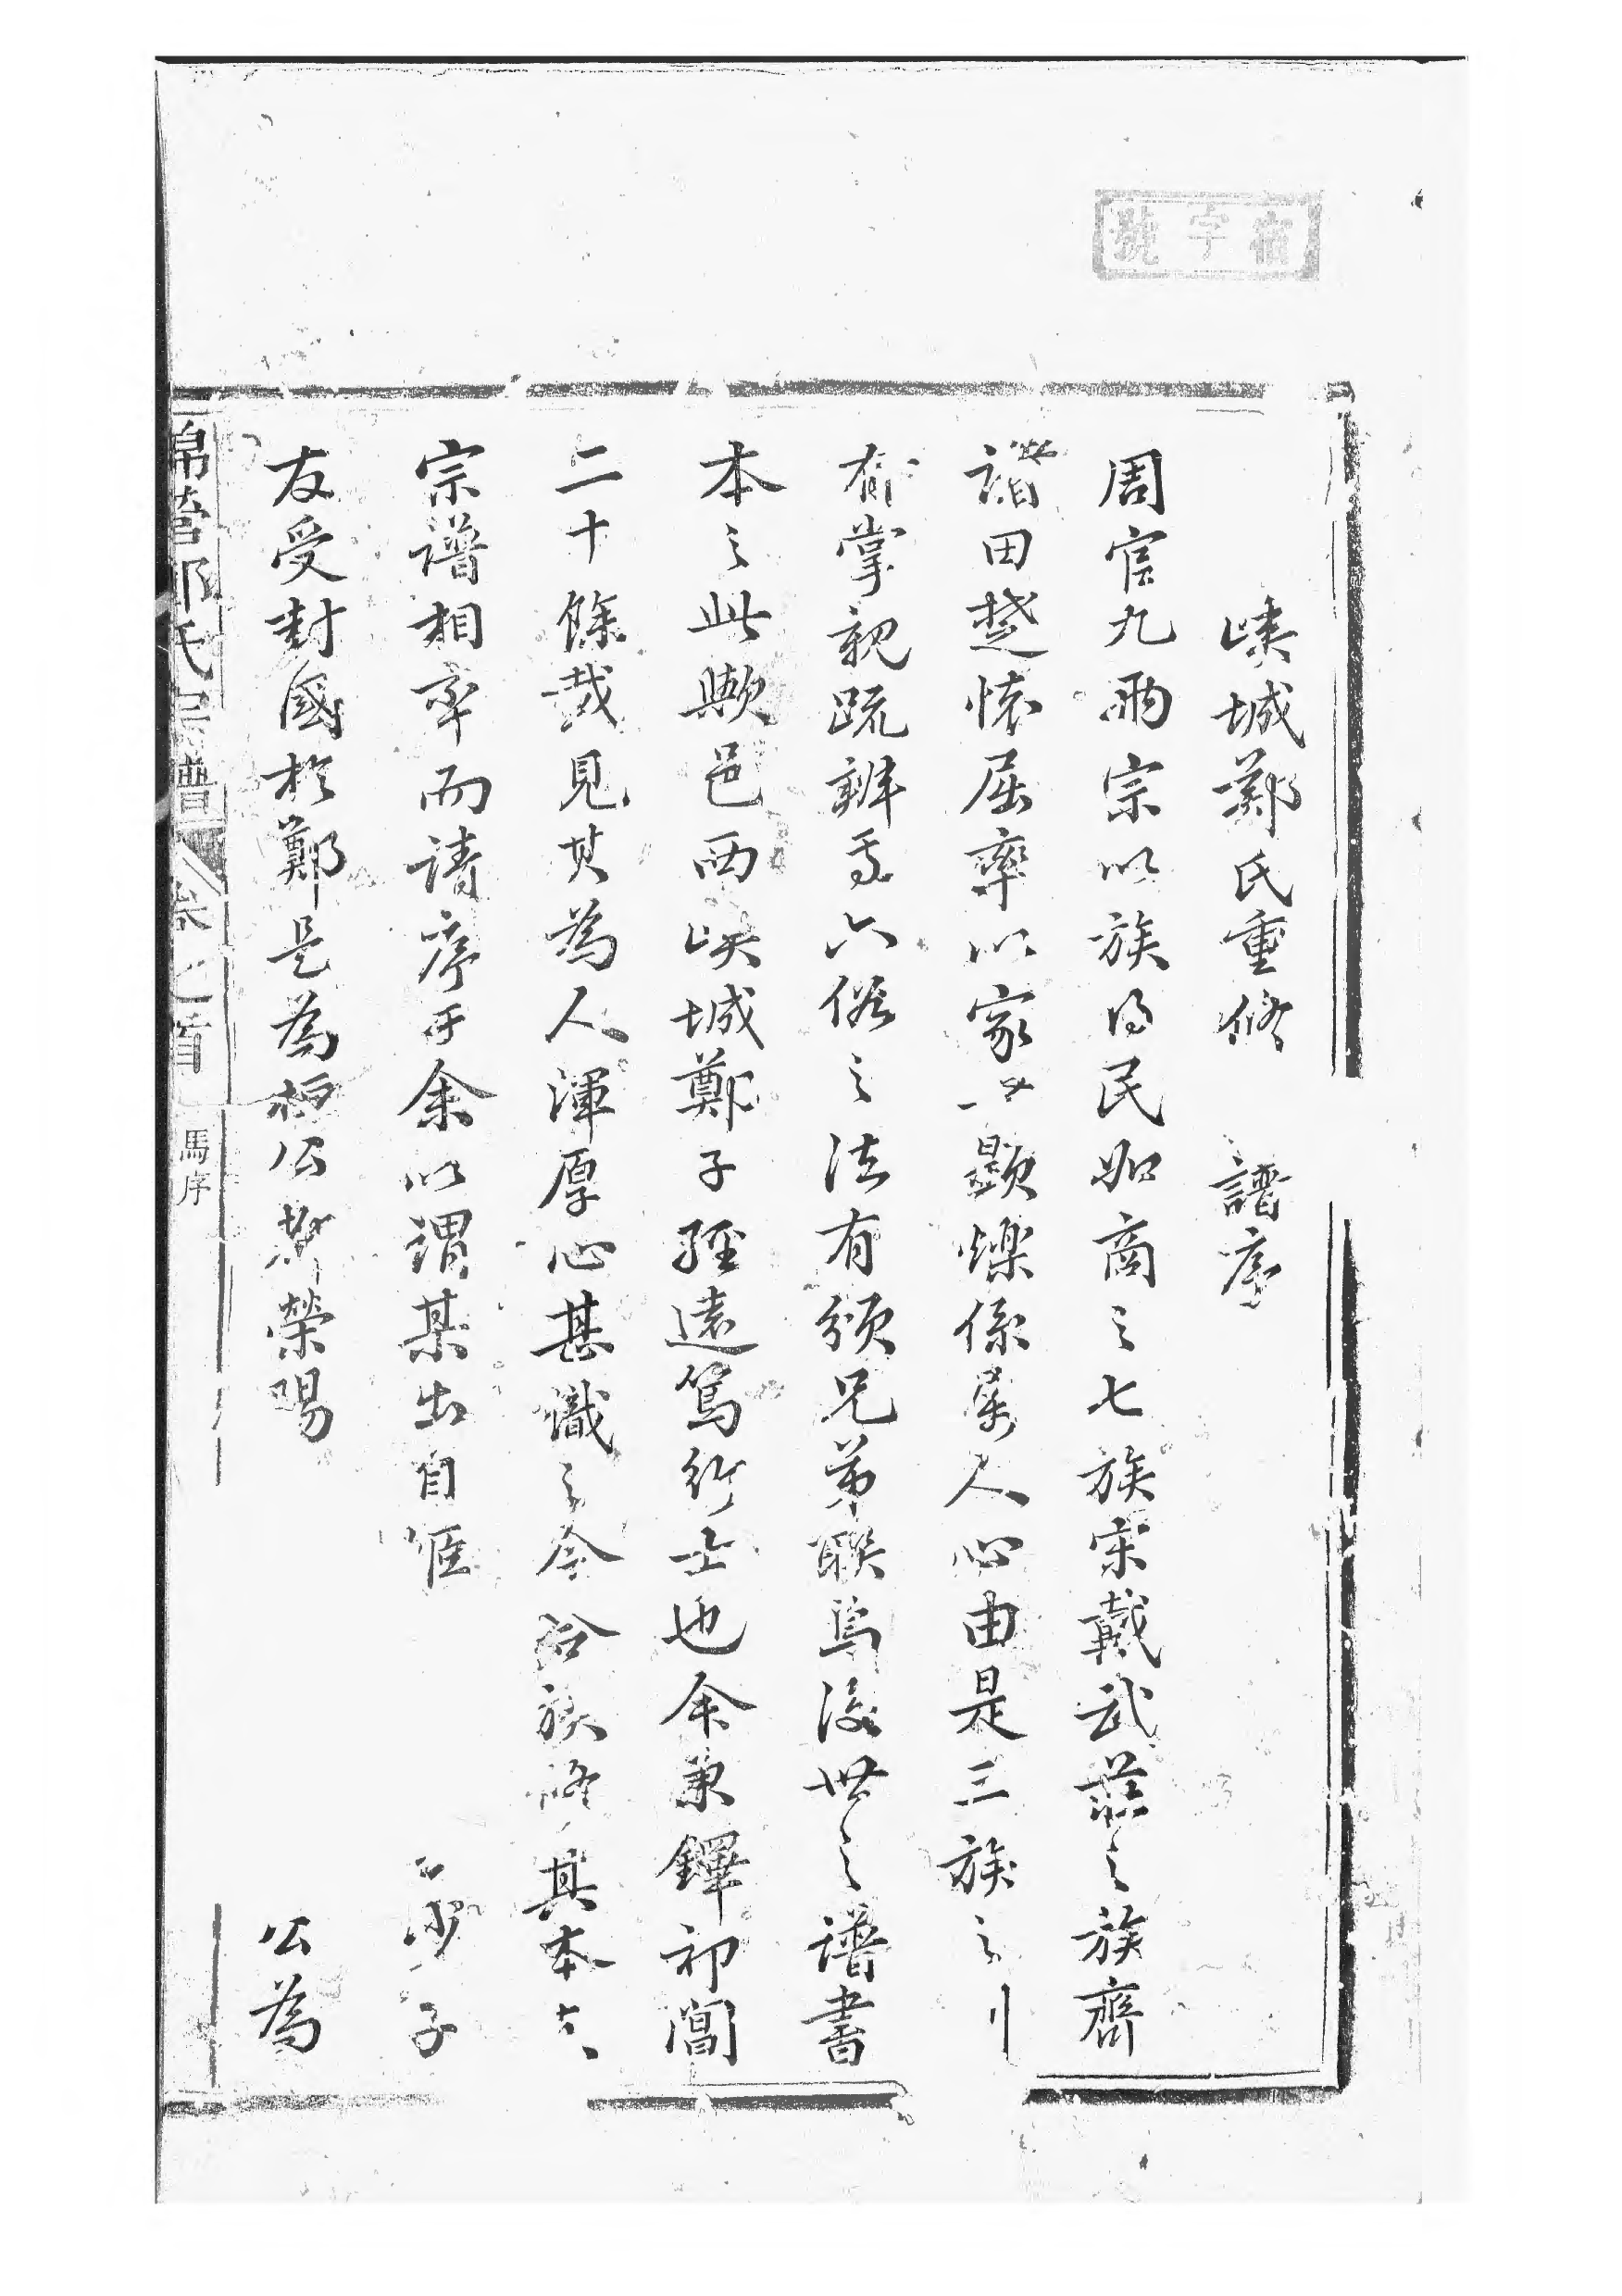 宿字號
嵊城鄭氏重修譜序
周官九兩宗以族得民如商之七族宋戴武莊之族齊
諸田楚懷屈率以家世顯爍係屬人心由是三族之
有掌親疏辨焉六俗之法有頒兄弟聯焉後世之譜書
本之此歟邑西峽城鄭子經遠篤行士也余秉鐸初聞
二十餘哉見其為人渾厚心甚識之今合族修其本
宗譜相率而請序于余以謂某出自 子
友受封國於鄭是為桓公 榮陽 公為
錦營鄭氏宗譜 卷之首 馬序